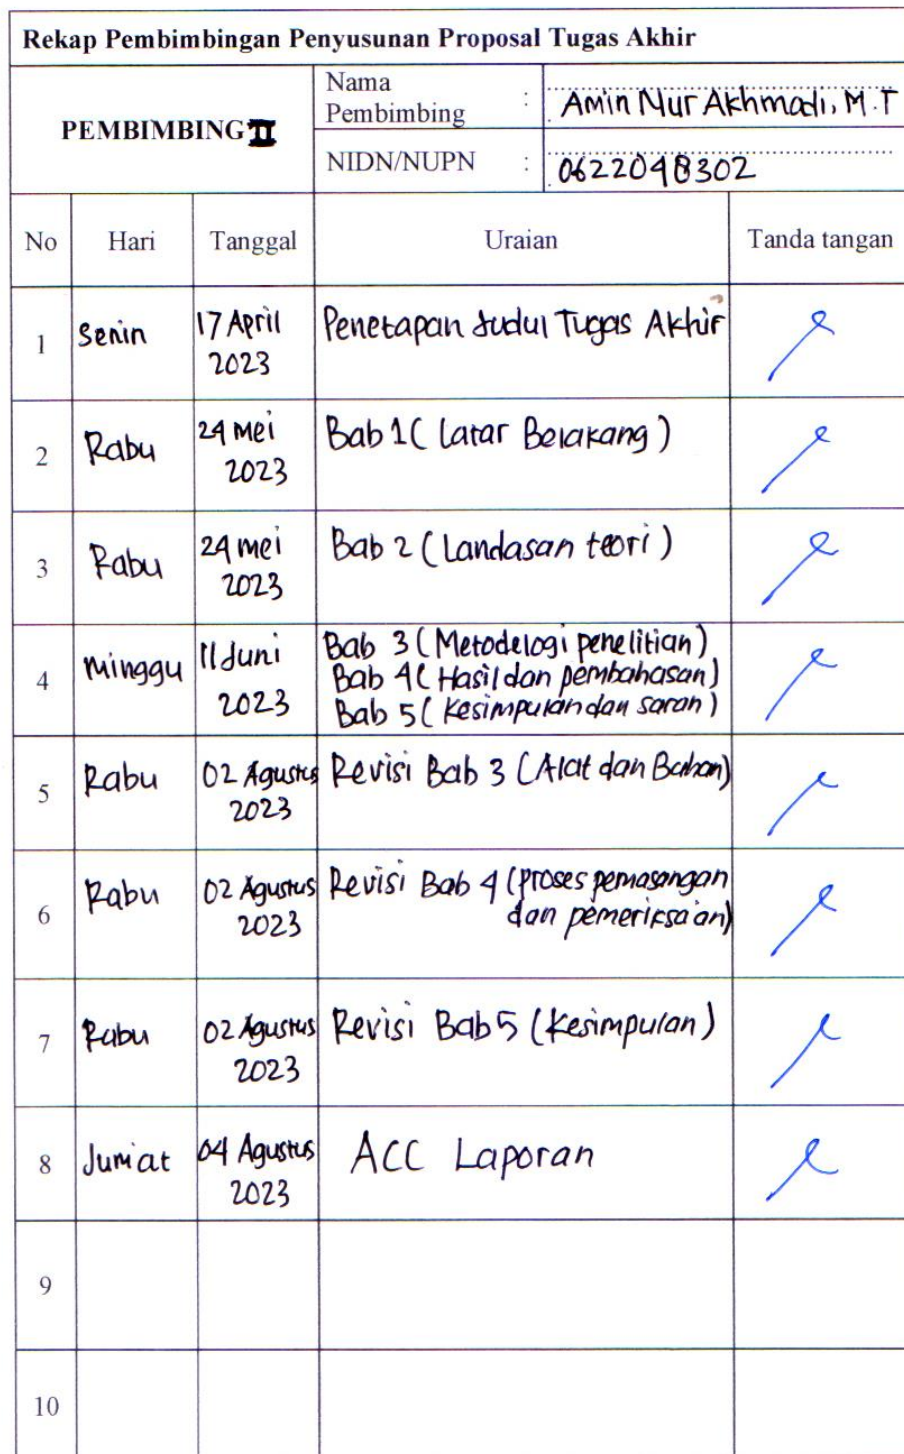 Rekap Pembimbingan Penyusunan Proposal Tugas Akhir
PEMBIMBING II
Nama Pembimbing : Amin Nur Akhmadi, M.T
NIDN/NUPN : 0622048302
No Hari Tanggal Uraian Tanda tangan
1 Senin 17 April 2023 Penetapan Judul Tugas Akhir
2 Rabu 24 Mei 2023 Bab 1 ( Latar Belakang )
3 Rabu 24 mei 2023 Bab 2 ( Landasan teori )
4 Minggu 11 Juni 2023 Bab 3 ( Metodelogi penelitian )
Bab 4 ( Hasil dan pembahasan )
Bab 5 ( Kesimpulan dan saran )
5 Rabu 02 Agustus 2023 Revisi Bab 3 ( Alat dan Bahan )
6 Rabu 02 Agustus 2023 Revisi Bab 4 ( proses pemasangan
dan pemeriksa'an )
7 Rabu 02 Agustus 2023 Revisi Bab 5 ( Kesimpulan )
8 Jum'at 04 Agustus 2023 ACC Laporan
9
10